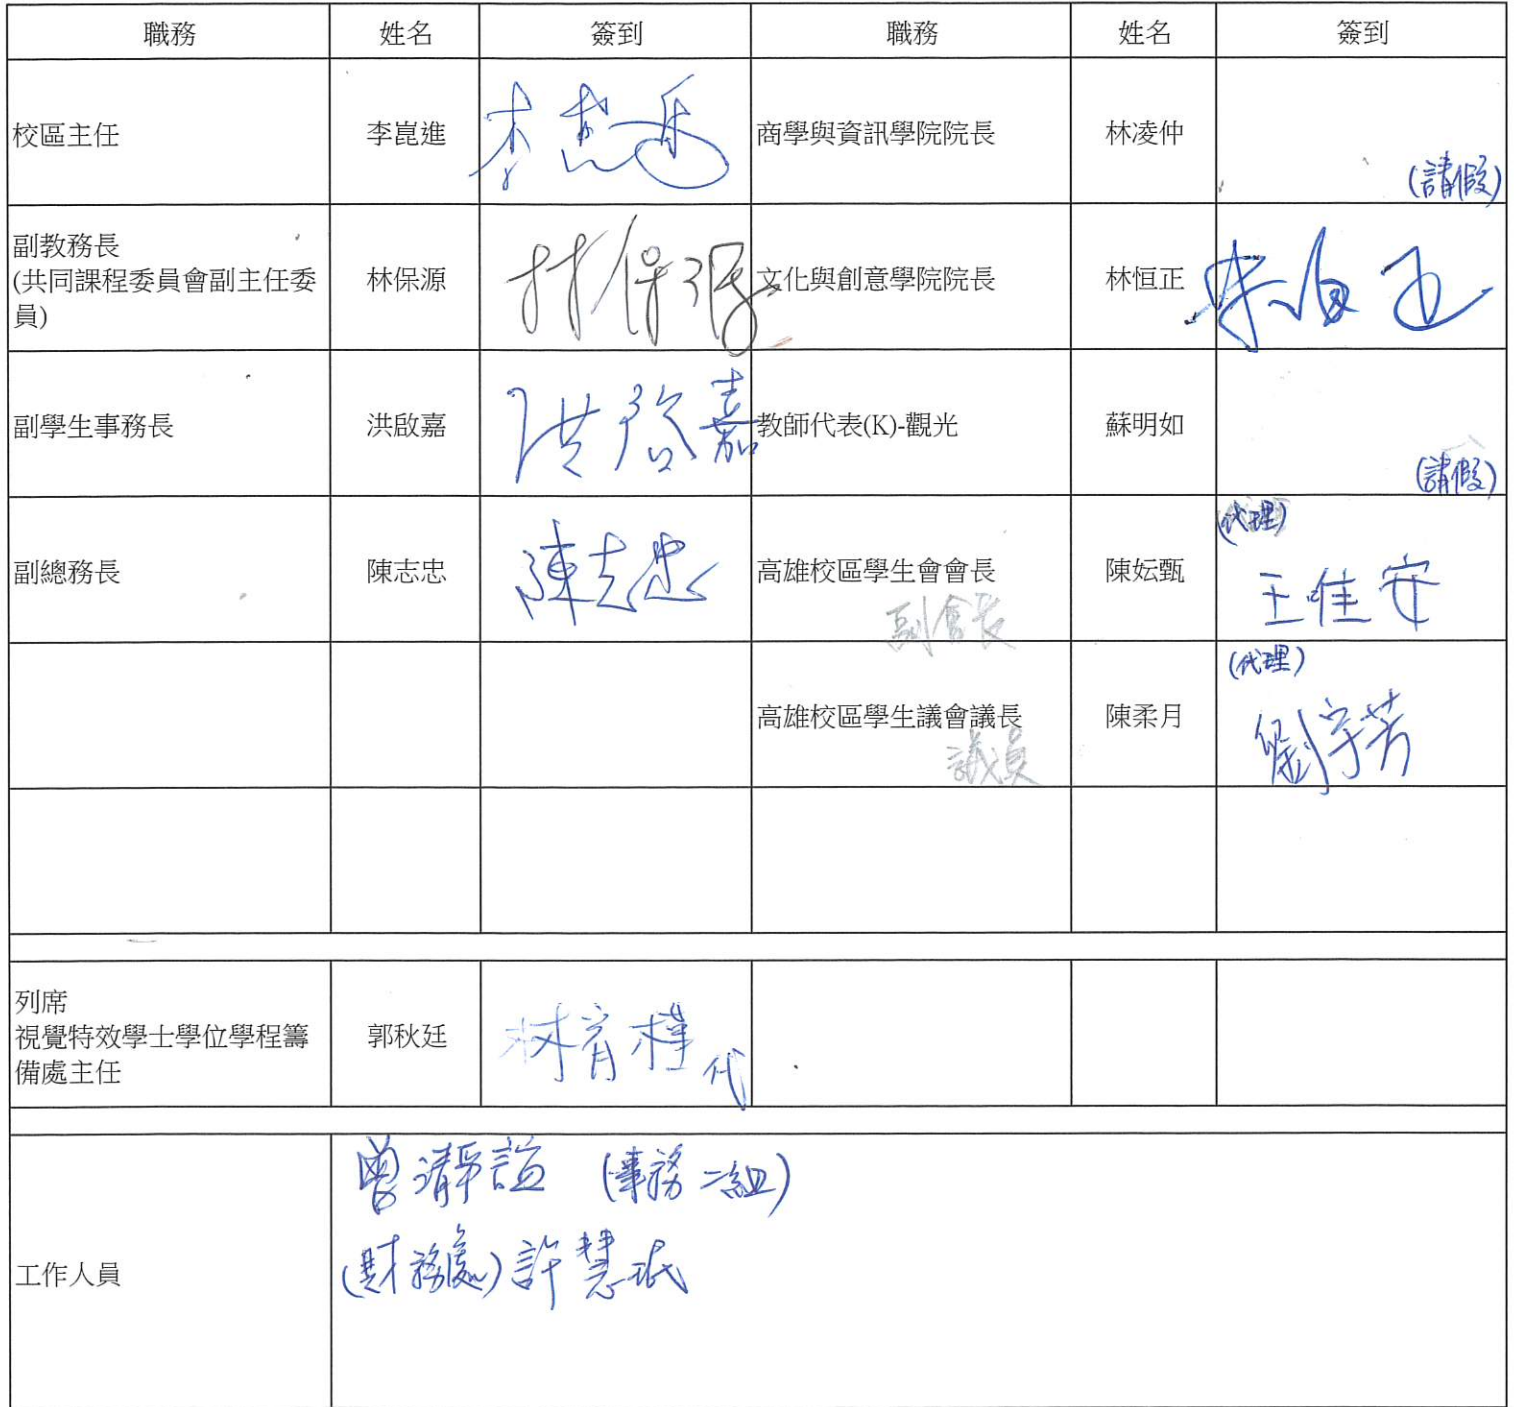 職務 姓名 簽到 職務 姓名 簽到
校區主任 李崑進 李崑進 商學與資訊學院院長 林凌仲 (請假)
副教務長
(共同課程委員會副主任委
員) 林保源 林保源 文化與創意學院院長 林恒正 林恒正
副學生事務長 洪啟嘉 洪啟嘉 教師代表(K)-觀光 蘇明如 (請假)
副總務長 陳志忠 陳志忠 高雄校區學生會會長 陳妘甄 (代理)
副會長 王佳安
高雄校區學生議會議長 陳柔月 (代理)
議員 劉宇芳
列席
視覺特效學士學位學程籌
備處主任 郭秋廷 林育樟 代
曾靜誼 (事務二組)
工作人員 (財務處)許慧珉